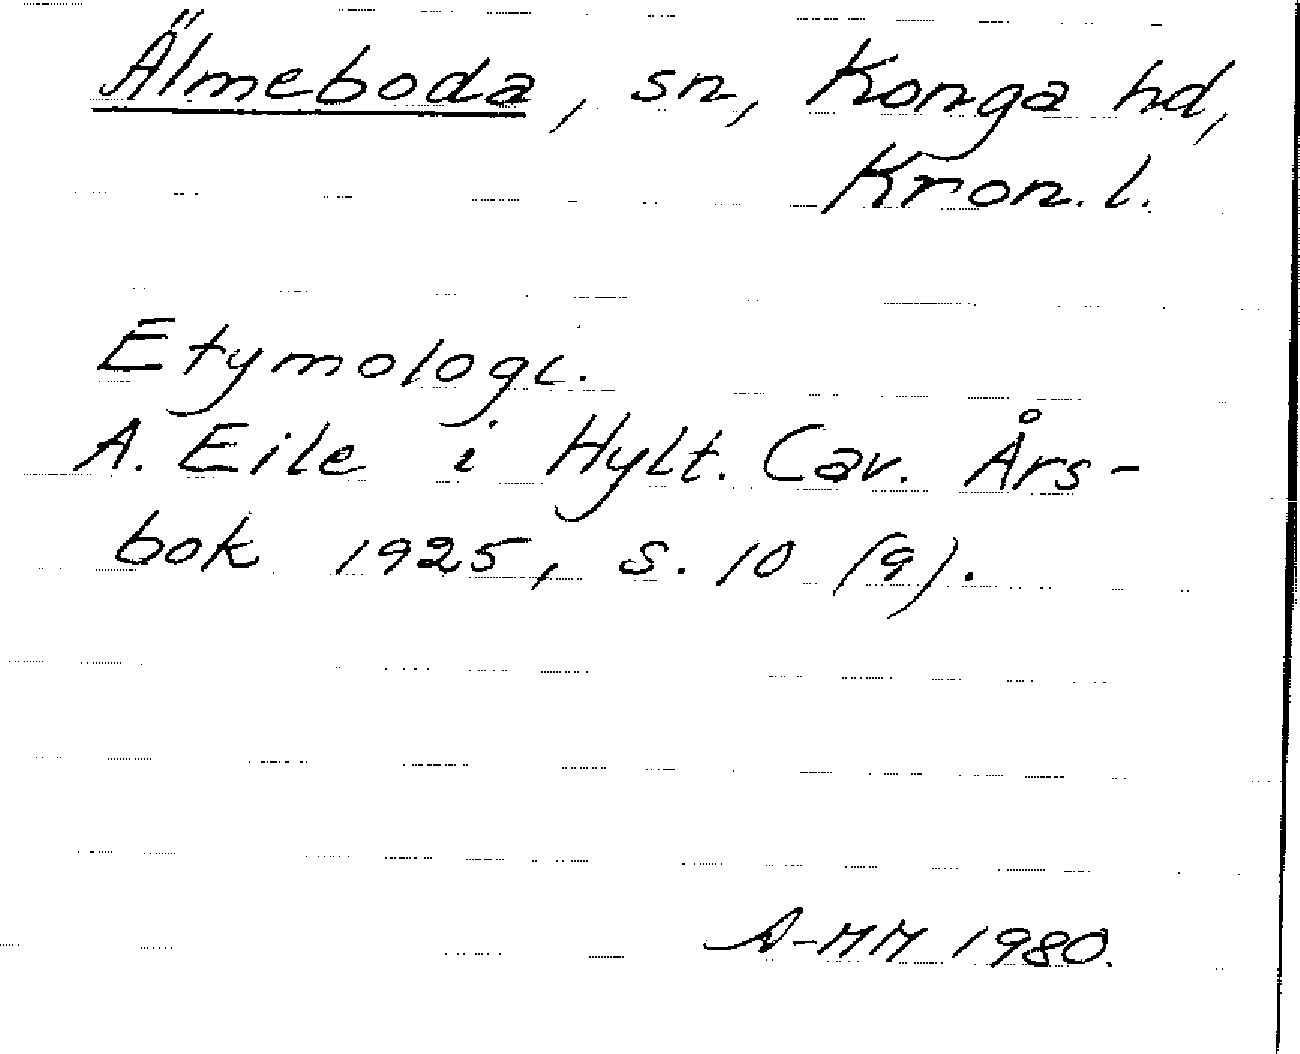 Älmeboda, sn, Konga hd,
Kron.l.
Etymologi.
A. Eile i Hylt. Cav. Års-
bok 1925, s. 10 (9).
A-MM 1980.